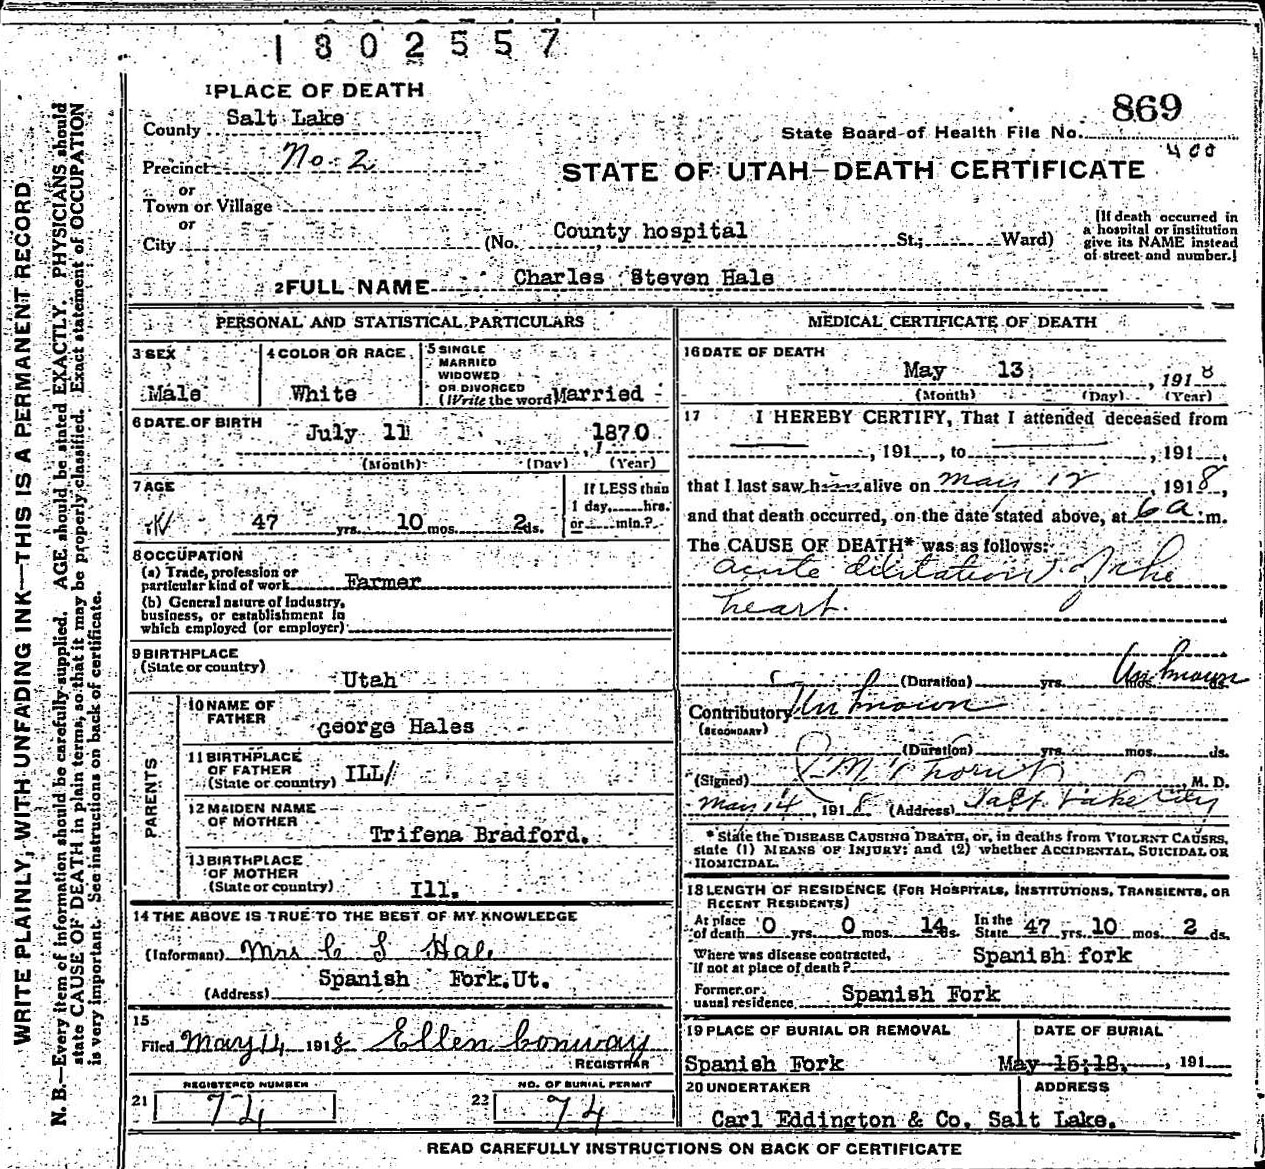 1302557
1 PLACE OF DEATH
County Salt Lake
869
State Board of Health File No.
400
Precinct No. 2
STATE OF UTAH—DEATH CERTIFICATE
or
Town or Village
or
City (No. County hospital St.; Ward)
[If death occurred in
a hospital or institution
give its NAME instead
of street and number.]
2 FULL NAME Charles Steven Hale
PERSONAL AND STATISTICAL PARTICULARS
3 SEX
Male
4 COLOR OR RACE
White
5 SINGLE
MARRIED
WIDOWED
OR DIVORCED
(Write the word) Married
6 DATE OF BIRTH
July 11, 1870
(Month) (Day) (Year)
7 AGE
47 yrs. 10 mos. 2 ds.
If LESS than
1 day, hrs.
or min.?
8 OCCUPATION
(a) Trade, profession or
particular kind of work Farmer
(b) General nature of industry,
business, or establishment in
which employed (or employer)
9 BIRTHPLACE
(State or country)
Utah
PARENTS
10 NAME OF
FATHER
George Hales
11 BIRTHPLACE
OF FATHER
(State or country) ILL/
12 MAIDEN NAME
OF MOTHER
Trifena Bradford.
13 BIRTHPLACE
OF MOTHER
(State or country) Ill.
14 THE ABOVE IS TRUE TO THE BEST OF MY KNOWLEDGE
(Informant) Mrs C S Hale
Spanish Fork.Ut.
(Address)
15
Filed May 14 1918 Ellen Conway
REGISTRAR
REGISTERED NUMBER
21 74
NO. OF BURIAL PERMIT
22 74
MEDICAL CERTIFICATE OF DEATH
16 DATE OF DEATH
May 13, 1918
(Month) (Day) (Year)
17 I HEREBY CERTIFY, That I attended deceased from
, 191 , to , 191 ,
that I last saw him alive on May 12, 1918,
and that death occurred, on the date stated above, at 6 a. m.
The CAUSE OF DEATH* was as follows:
acute dilitation of the
heart.
(Duration) yrs. mos. ds. Unknown
Contributory Unknown
(SECONDARY)
(Duration) yrs. mos. ds.
(Signed) M. D.
May 14, 1918 (Address) Salt Lake City
*State the DISEASE CAUSING DEATH, or, in deaths from VIOLENT CAUSES,
state (1) MEANS OF INJURY; and (2) whether ACCIDENTAL, SUICIDAL OR
HOMICIDAL.
18 LENGTH OF RESIDENCE (FOR HOSPITALS, INSTITUTIONS, TRANSIENTS, OR
RECENT RESIDENTS)
At place
of death 0 yrs. 0 mos. 14 ds. In the
State 47 yrs. 10 mos. 2 ds.
Where was disease contracted,
if not at place of death? Spanish fork
Former or
usual residence Spanish Fork
19 PLACE OF BURIAL OR REMOVAL
Spanish Fork
DATE OF BURIAL
May 15,18, , 191
20 UNDERTAKER
Carl Eddington & Co.
ADDRESS
Salt Lake.
READ CAREFULLY INSTRUCTIONS ON BACK OF CERTIFICATE
WRITE PLAINLY, WITH UNFADING INK—THIS IS A PERMANENT RECORD
N. B.—Every item of information should be carefully supplied. AGE should be stated EXACTLY. PHYSICIANS should
state CAUSE OF DEATH in plain terms, so that it may be properly classified. Exact statement of OCCUPATION
is very important. See instructions on back of certificate.